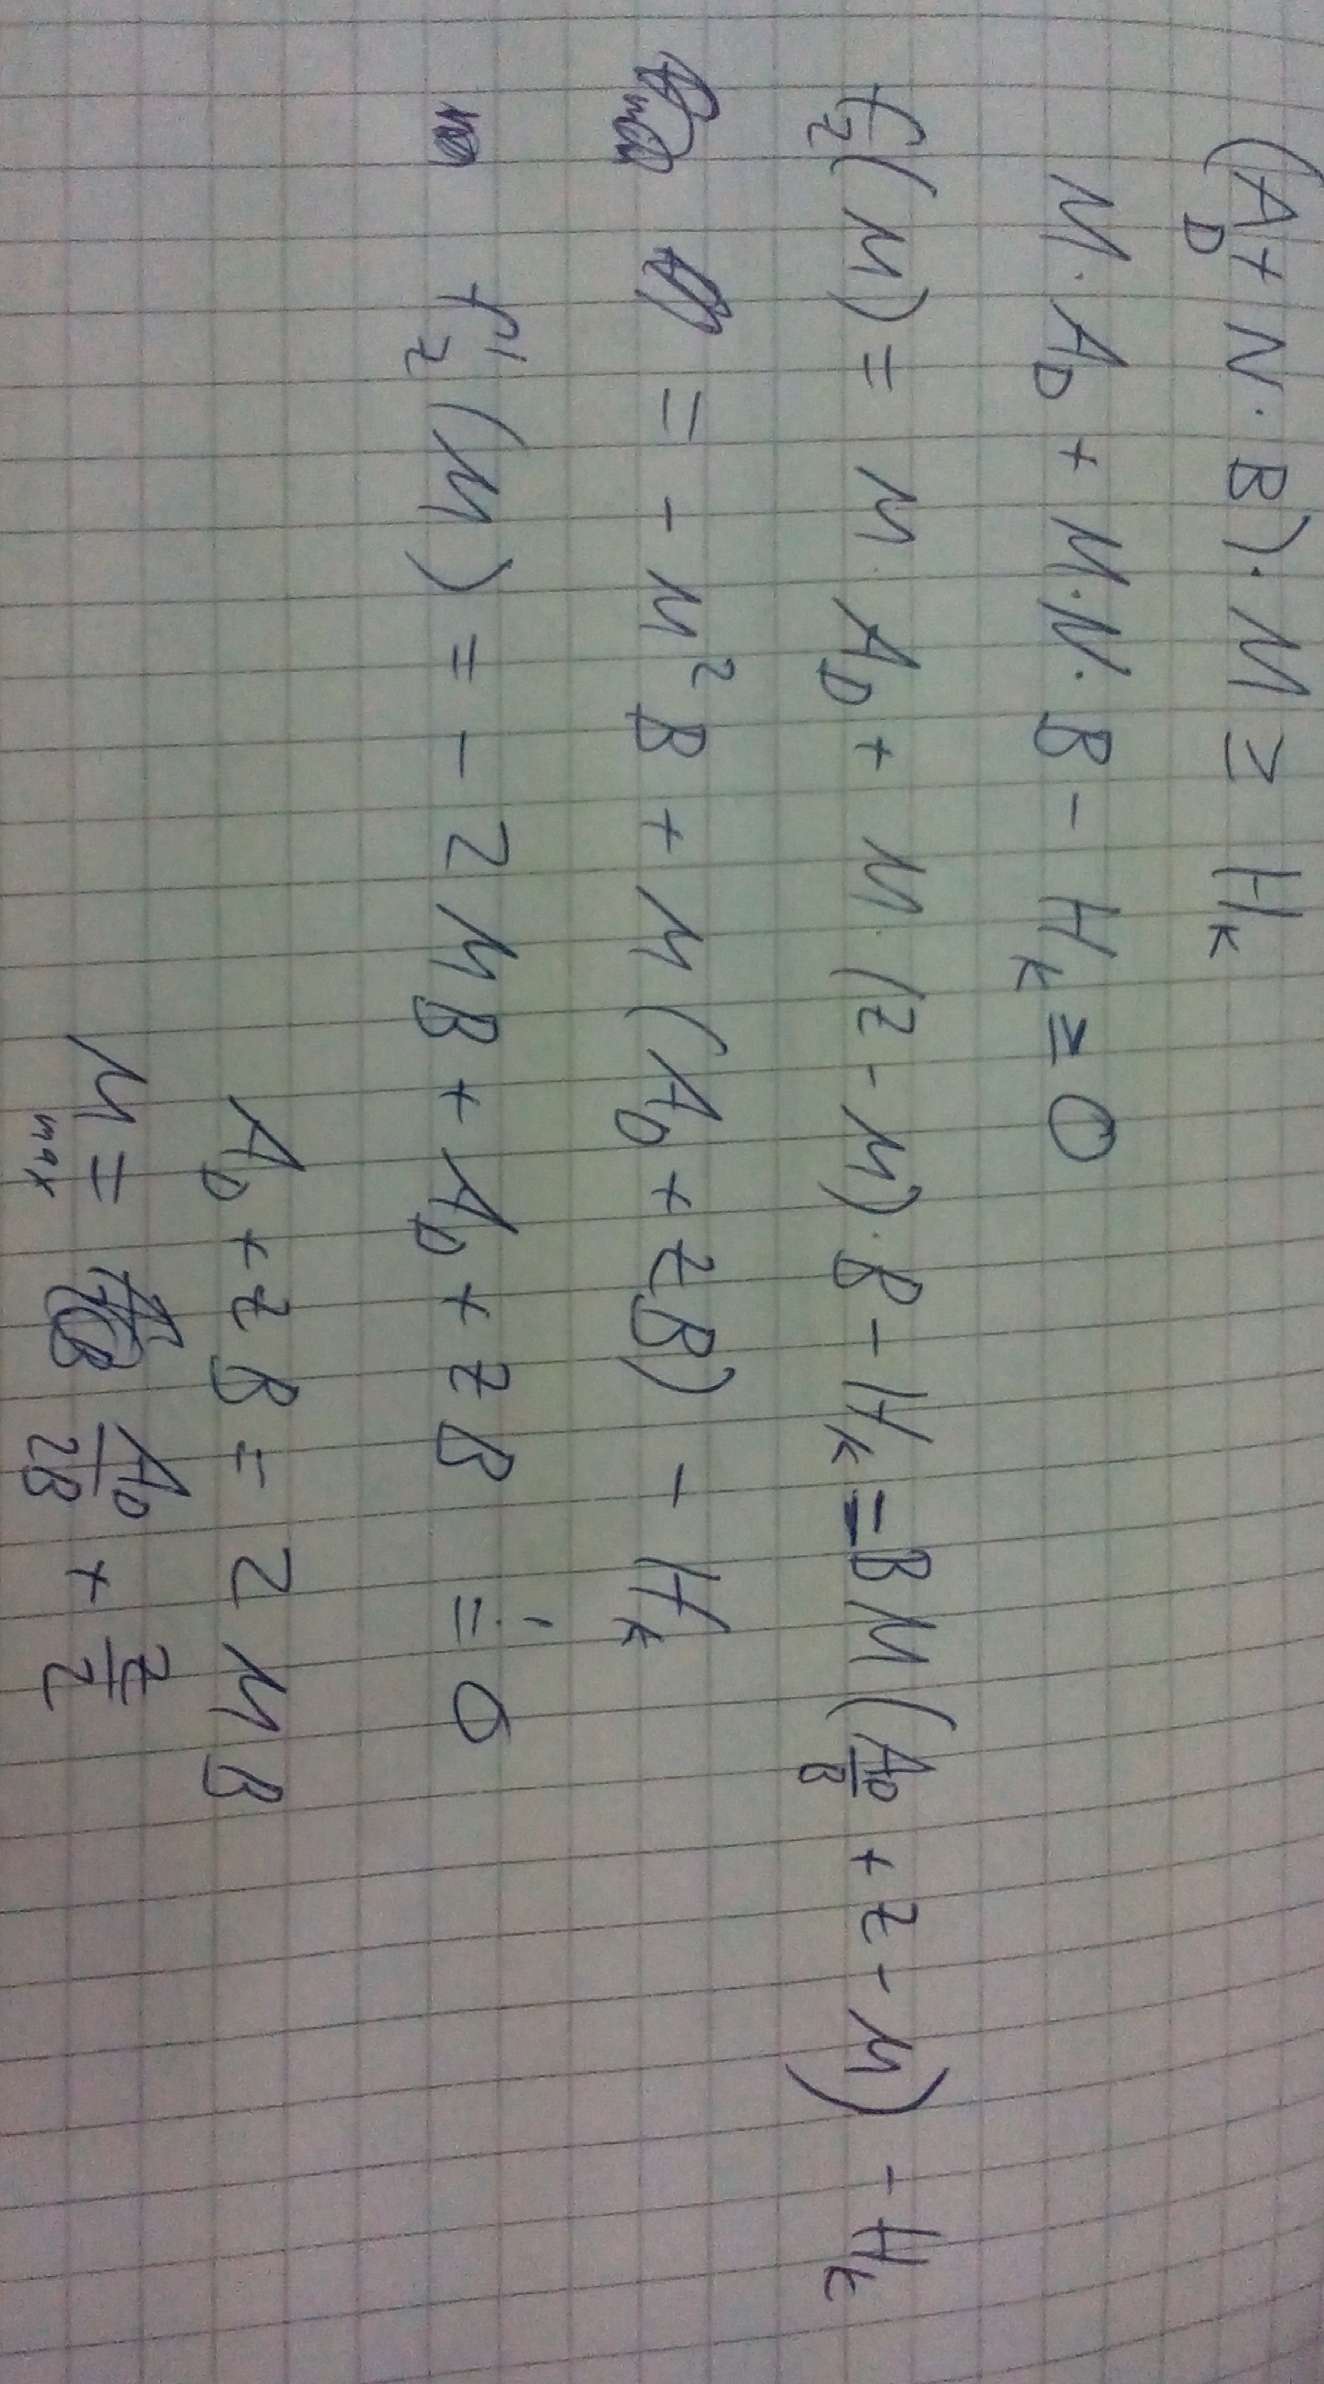 (A_D + N · B) · M ≥ H_K
M · A_D + M · N · B - H_K ≥ 0
f_z(M) = M · A_D + M · (z - M) · B - H_K = B M (A_D/B + z - M) - H_K
= - M² B + M (A_D + z B) - H_K
f'_z(M) = - 2 M B + A_D + z B = 0
A_D + z B = 2 M B
M_max = A_D/2B + z/2